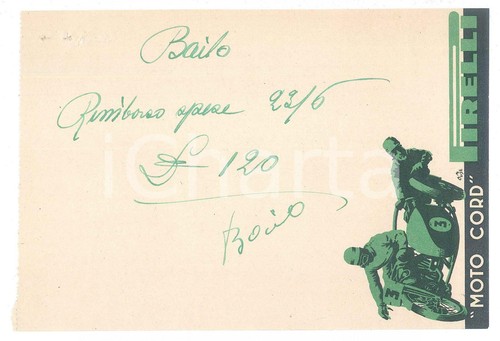 Bailo
Rimborso spese 22/6
£ 120
Bailo
PIRELLI
"MOTO CORD"
3
3
iCharta